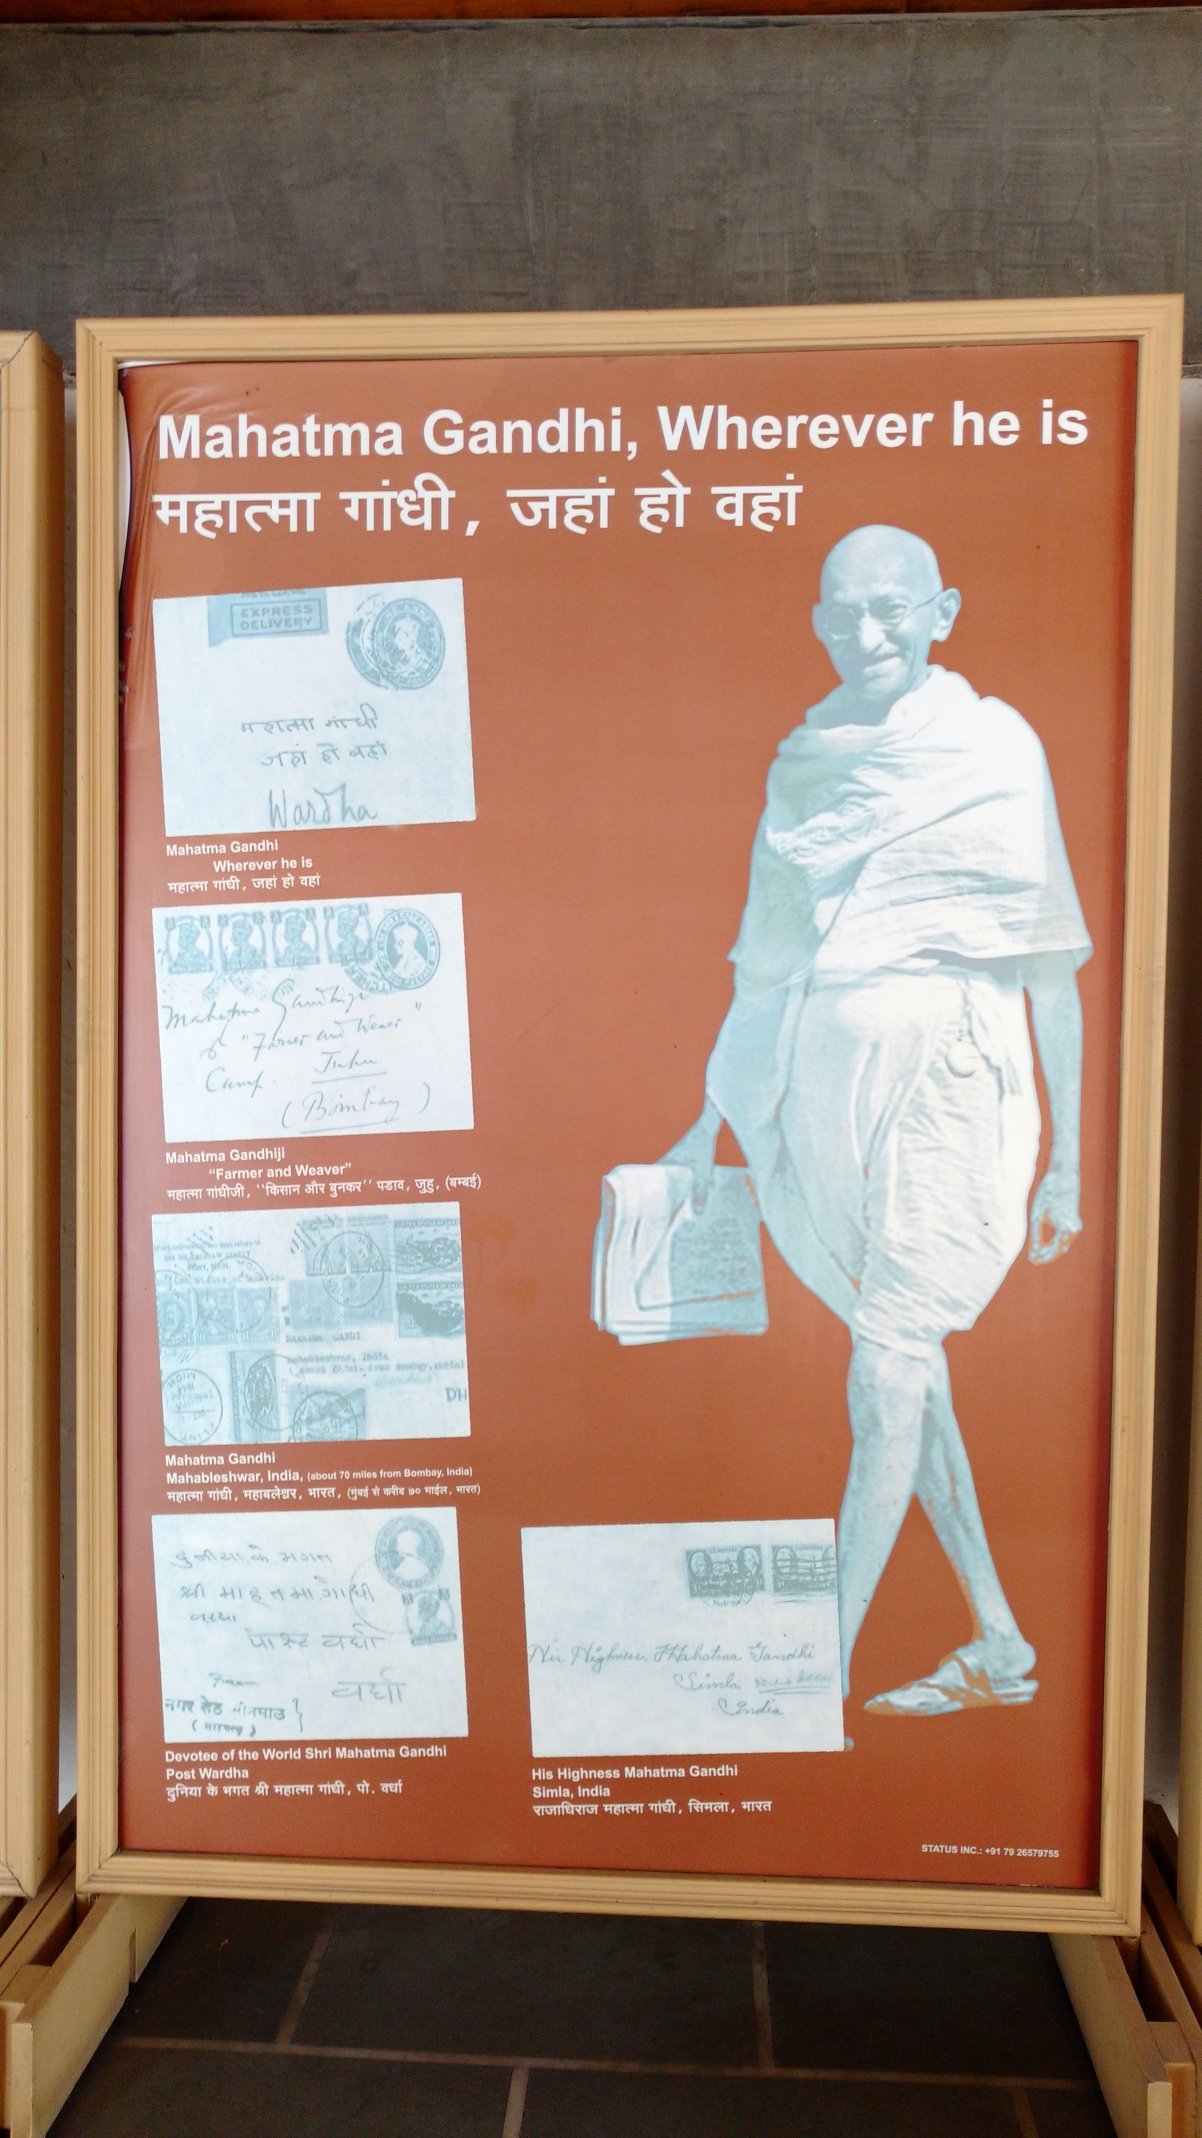 Mahatma Gandhi, Wherever he is
महात्मा गांधी, जहां हो वहां
EXPRESS
DELIVERY
महात्मा गांधी
जहां हो वहां
Wardha
Mahatma Gandhi
Wherever he is
महात्मा गांधी, जहां हो वहां
Mahatma Gandhiji
"Farmer and Weaver"
Camp Juhu
(Bombay)
Mahatma Gandhiji
“Farmer and Weaver”
महात्मा गांधीजी, ''किसान और बुनकर'' पडाव, जुहु, (बम्बई)
GANDI
Mahableshwar, India
(about 70 mi. from Bombay, India)
Mahatma Gandhi
Mahableshwar, India, (about 70 miles from Bombay, India)
महात्मा गांधी, महाबलेश्वर, भारत, (मुंबई से करीब ७० माईल, भारत)
दुनीया के भगत
श्री माहतमा गांधी
पोस्ट वर्धा
वर्धा
From
नगर सेठ
Devotee of the World Shri Mahatma Gandhi
Post Wardha
दुनिया के भगत श्री महात्मा गांधी, पो. वर्धा
His Highness Mahatma Gandhi
Simla
India
His Highness Mahatma Gandhi
Simla, India
राजाधिराज महात्मा गांधी, सिमला, भारत
STATUS INC.: +91 79 26579755